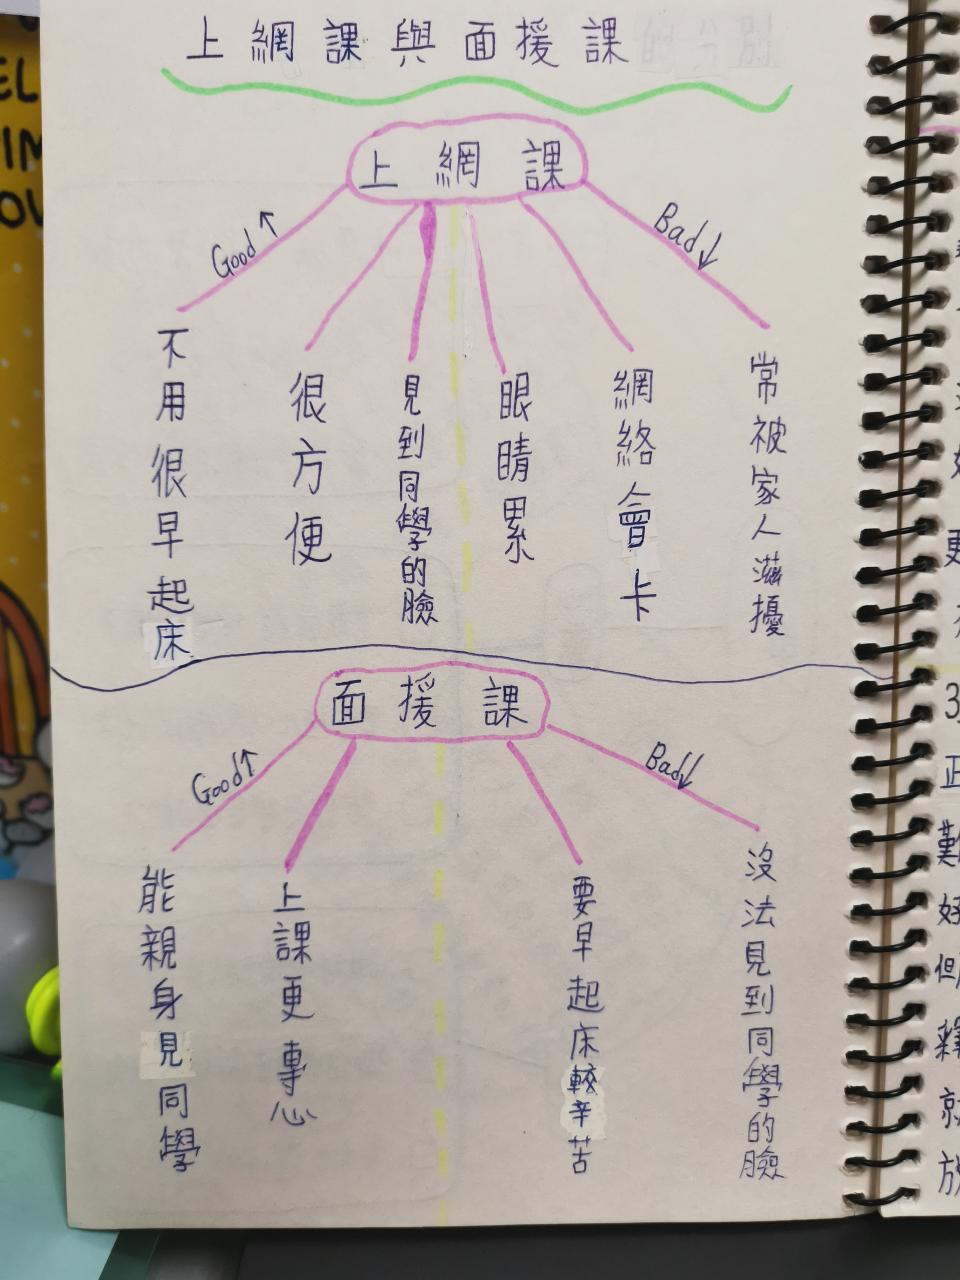 上網課與面授課
上網課
Good↑
Bad↓
不用很早起床
很方便
見到同學的臉
眼睛累
網絡會卡
常被家人滋擾
面授課
Good↑
Bad↓
能親身見同學
上課更專心
要早起床較辛苦
沒法見到同學的臉